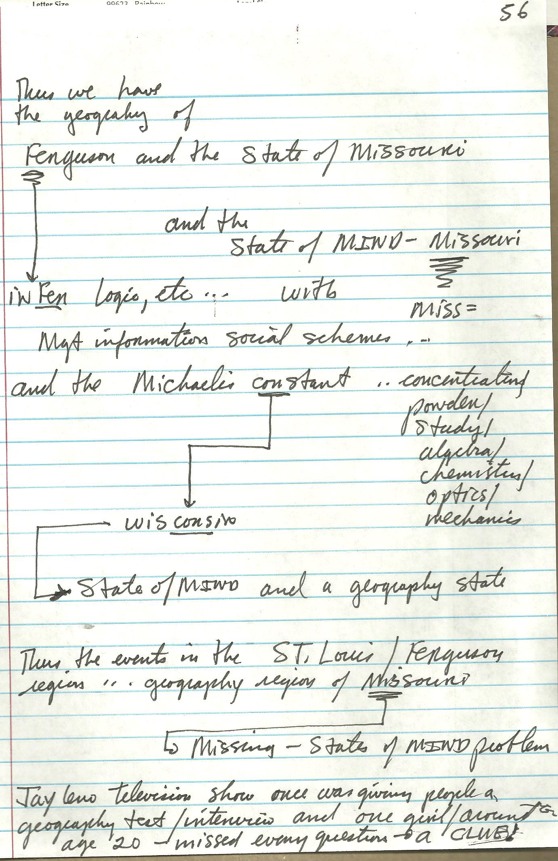 56
Thus we have
the geograhy of
Ferguson and the State of Missouri
and the
State of MIND - Missouri
in Fen Logic, etc ... with
Miss =
Mgt information social schemes ...
and the Michaelis constant .. concentrating
powder/
study/
algebra/
chemistry/
optics/
mechanics
wisconsin
State of MIND and a geography state
Thus the events in the ST. Louis / Ferguson
region ... geography region of Missouri
Missing - States of MIND problem
Jay Leno television show once was giving people a
geography test/interview and one girl/around
age 20 - missed every question → a CLUE!